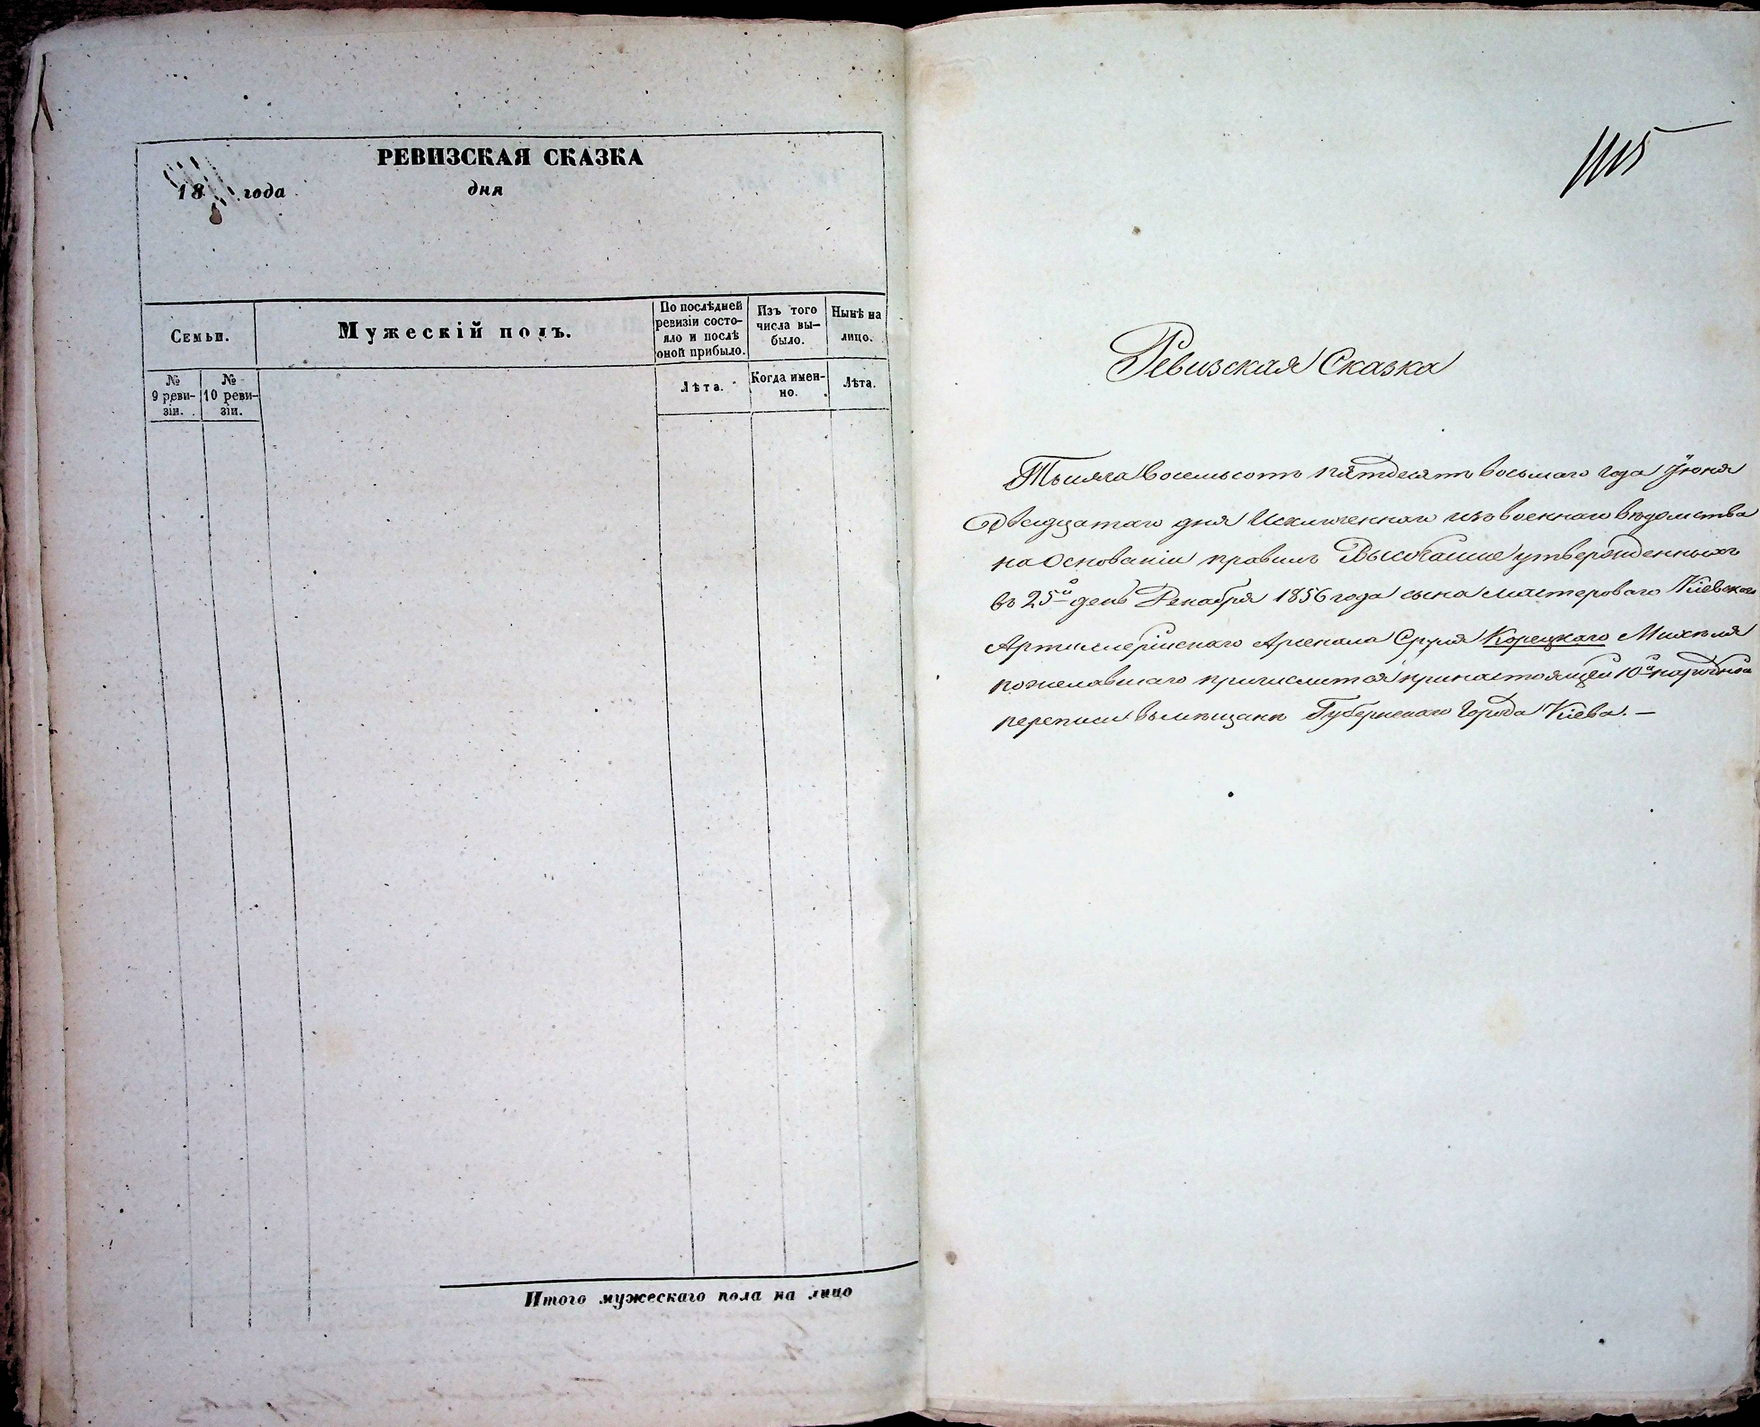 РЕВИЗСКАЯ СКАЗКА
18 года дня
Семьи.
Мужескій полъ.
По послѣдней ревизіи состояло и послѣ оной прибыло.
Изъ того числа выбыло.
Нынѣ на лицо.
№ 9 ревизіи.
№ 10 ревизіи.
Лѣта.
Когда именно.
Лѣта.
Итого мужескаго пола на лицо
1115
Ревизская Сказка
Тысяча восемьсотъ пятдесятъ восьмаго года Іюня
двадцатаго дня Исключеннаго изъ военнаго вѣдомства
на основаніи правилъ Высочайше утвержденныхъ
въ 25й день Декабря 1856 года сына мастероваго Кіевскаго
Артиллерійскаго Арсенала Сруля Корецкаго Михеля
пожелавшаго причислится при настоящей 10й народной
переписи въ мѣщане Губернскаго Города Кіева. —